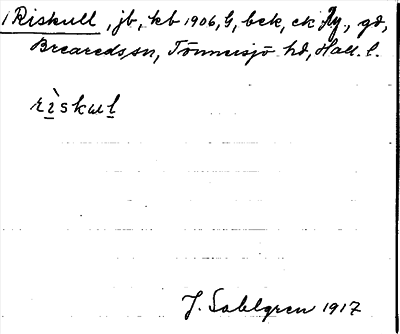 1 Riskull, jb, kb 1906, G, bek, ek Ny, gd,
Breareds sn, Tönnersjö hd, Hall. l.
rìskul
J. Sahlgren 1917